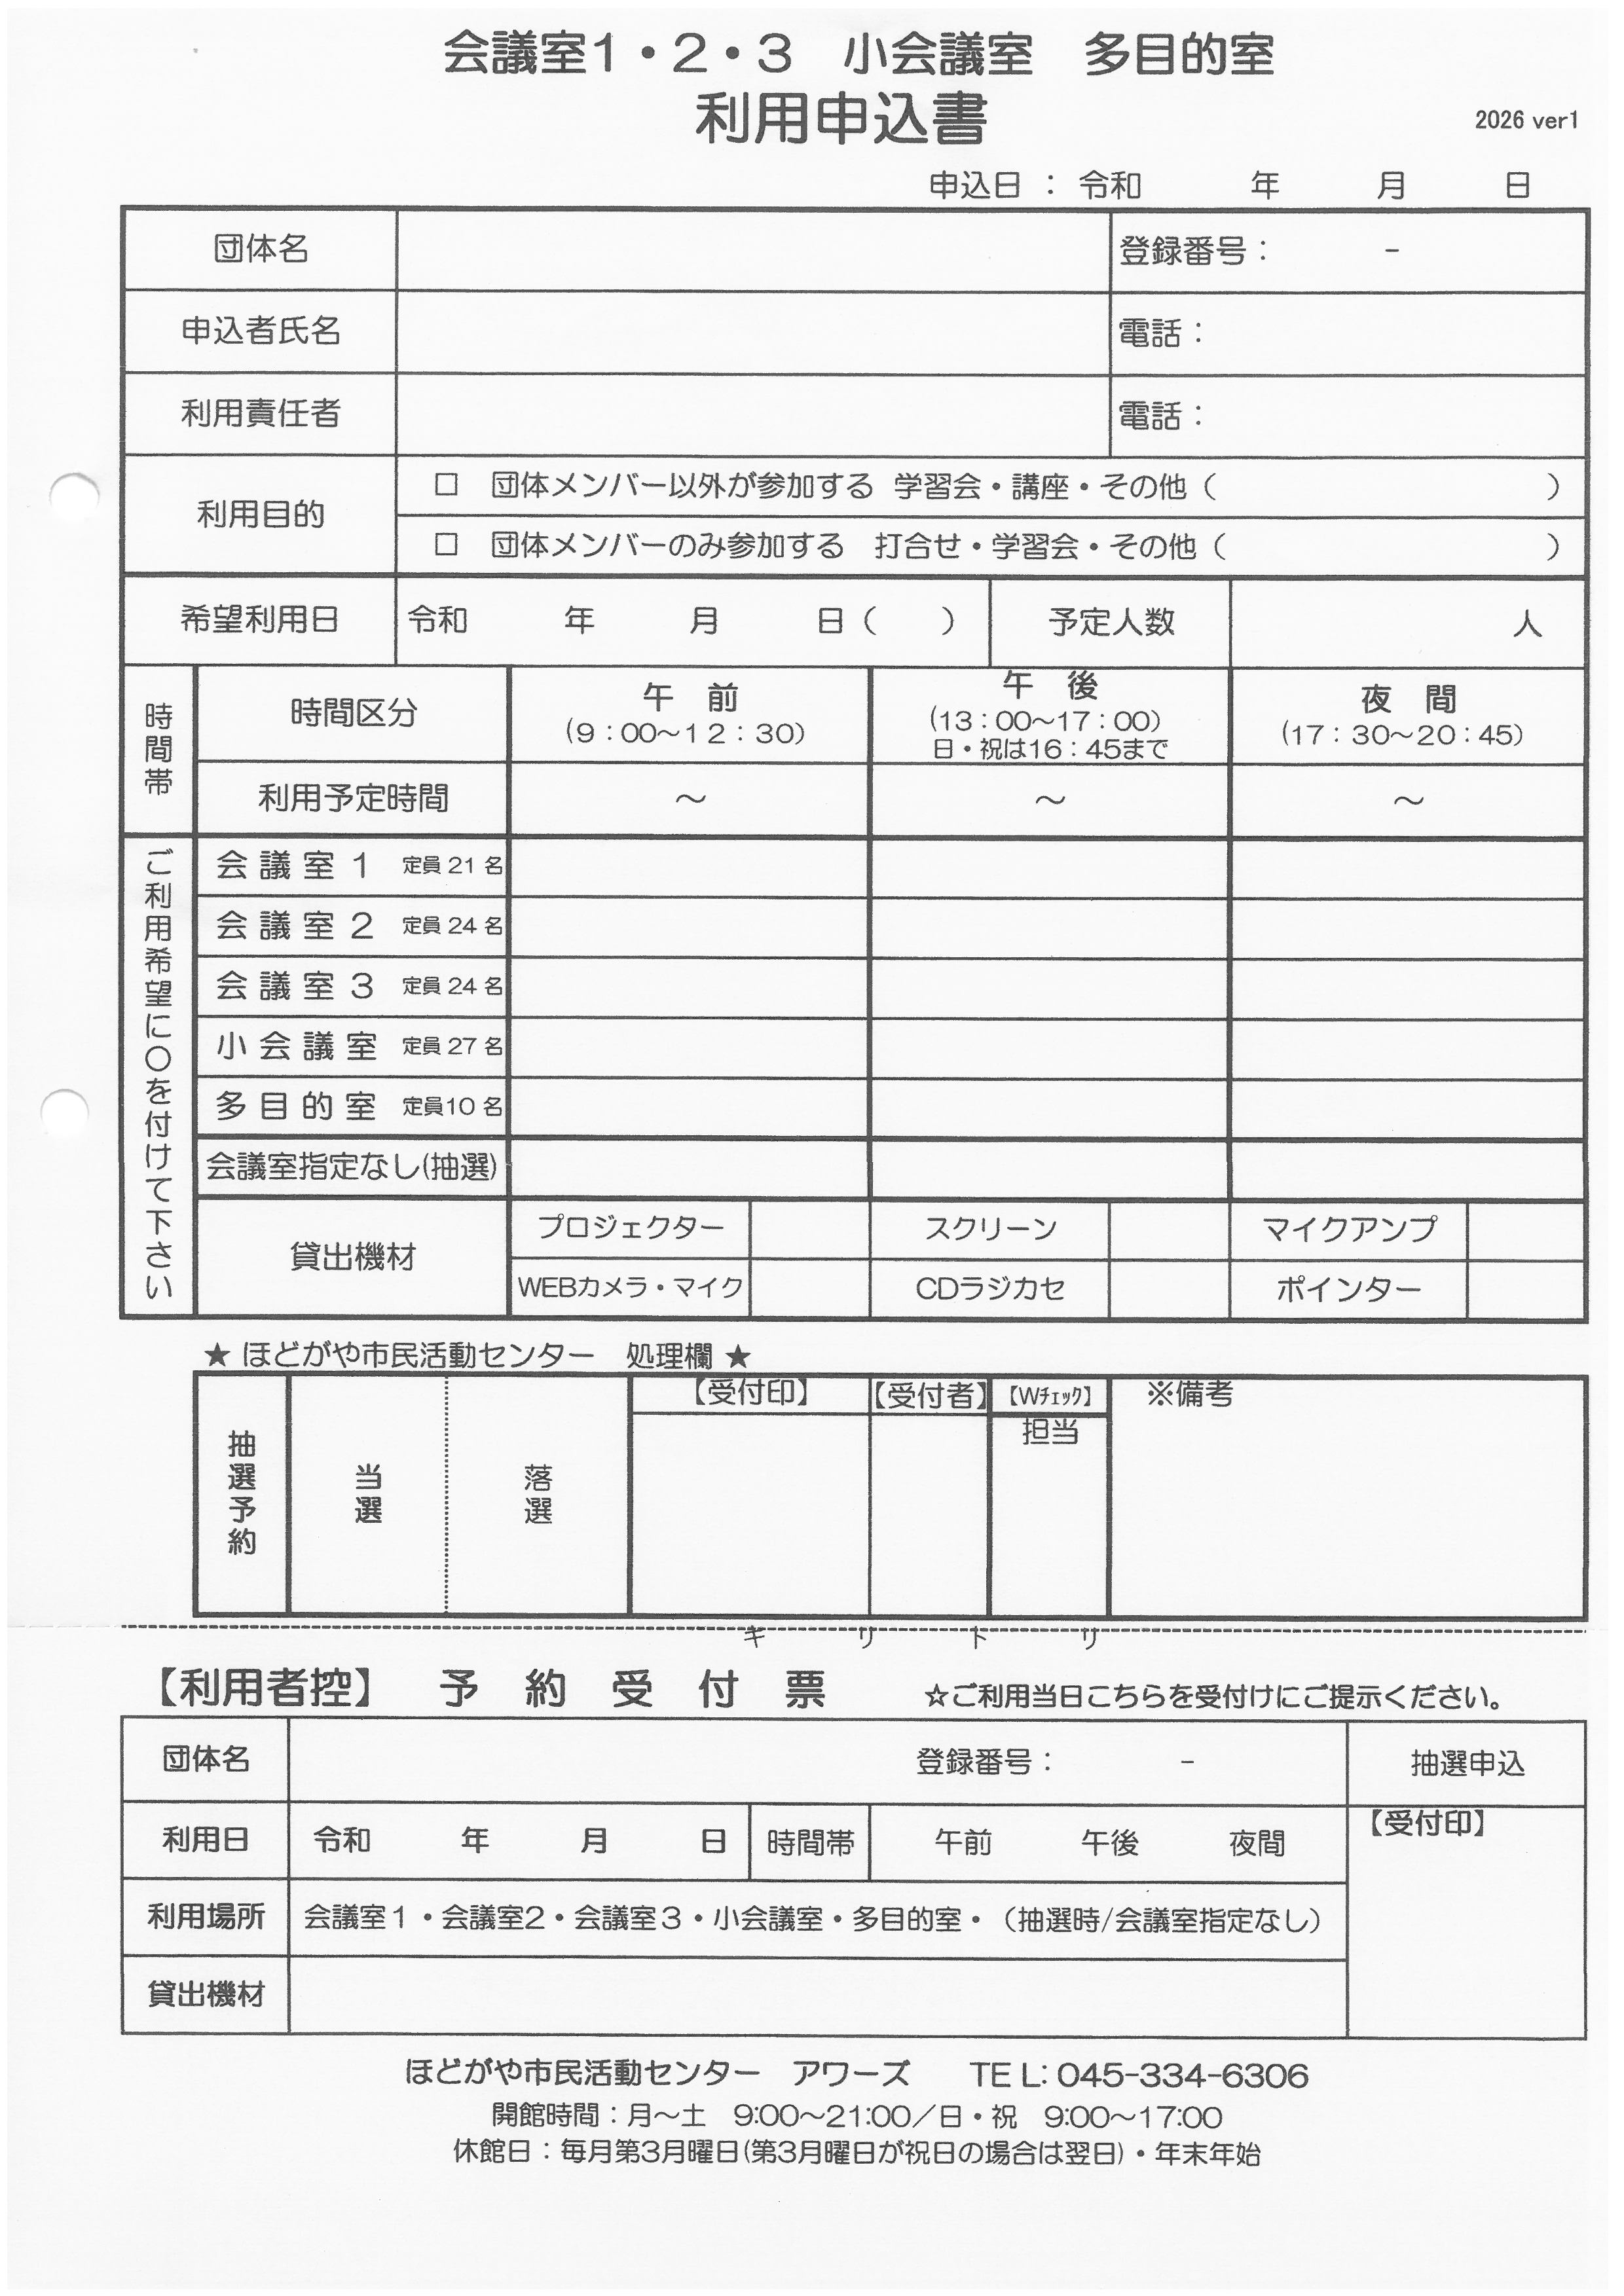 会議室1・2・3　小会議室　多目的室
利用申込書
2026 ver1
申込日 ： 令和　　　年　　　月　　　日
団体名　　　登録番号：　　　-
申込者氏名　　　電話：
利用責任者　　　電話：
利用目的
□　団体メンバー以外が参加する 学習会・講座・その他（　　　）
□　団体メンバーのみ参加する　打合せ・学習会・その他（　　　）
希望利用日　令和　　　年　　　月　　　日（　　）　予定人数　　　人
時間帯
時間区分
午　前
（9：00～12：30）
午　後
（13：00～17：00）
日・祝は16：45まで
夜　間
（17：30～20：45）
利用予定時間　～　～　～
ご利用希望に〇を付けて下さい
会議室1　定員21名
会議室2　定員24名
会議室3　定員24名
小会議室　定員27名
多目的室　定員10名
会議室指定なし(抽選)
貸出機材
プロジェクター　スクリーン　マイクアンプ
WEBカメラ・マイク　CDラジカセ　ポインター
★ ほどがや市民活動センター　処理欄 ★
抽選予約
当選
落選
【受付印】
【受付者】
【Wﾁｪｯｸ】
担当
※備考
キ　リ　ト　リ
【利用者控】　予　約　受　付　票　　☆ご利用当日こちらを受付けにご提示ください。
団体名　　　登録番号：　　　-　　　抽選申込
利用日　令和　　　年　　　月　　　日　時間帯　午前　　午後　　夜間
【受付印】
利用場所　会議室1・会議室2・会議室3・小会議室・多目的室・（抽選時/会議室指定なし）
貸出機材
ほどがや市民活動センター　アワーズ　　TEL: 045-334-6306
開館時間：月～土　9:00～21:00／日・祝　9:00～17:00
休館日：毎月第3月曜日(第3月曜日が祝日の場合は翌日)・年末年始